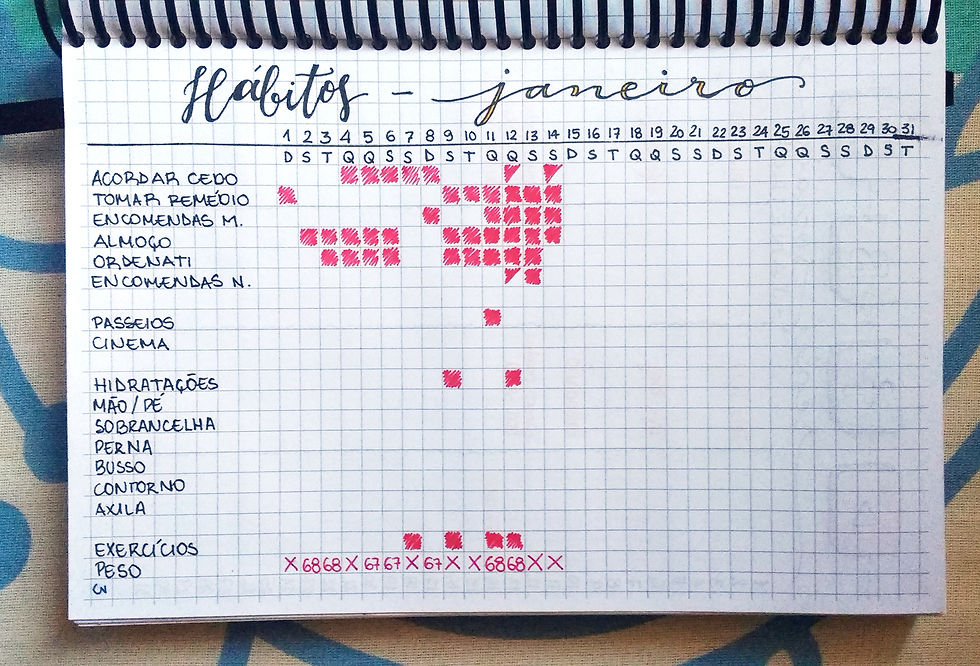 Hábitos - janeiro
1 2 3 4 5 6 7 8 9 10 11 12 13 14 15 16 17 18 19 20 21 22 23 24 25 26 27 28 29 30 31
D S T Q Q S S D S T Q Q S S D S T Q Q S S D S T Q Q S S D S T
ACORDAR CEDO
TOMAR REMÉDIO
ENCOMENDAS M.
ALMOÇO
ORDENATI
ENCOMENDAS N.
PASSEIOS
CINEMA
HIDRATAÇÕES
MÃO/PÉ
SOBRANCELHA
PERNA
BUSSO
CONTORNO
AXILA
EXERCÍCIOS
PESO X 68 68 X 67 67 X 67 X X 68 68 X X